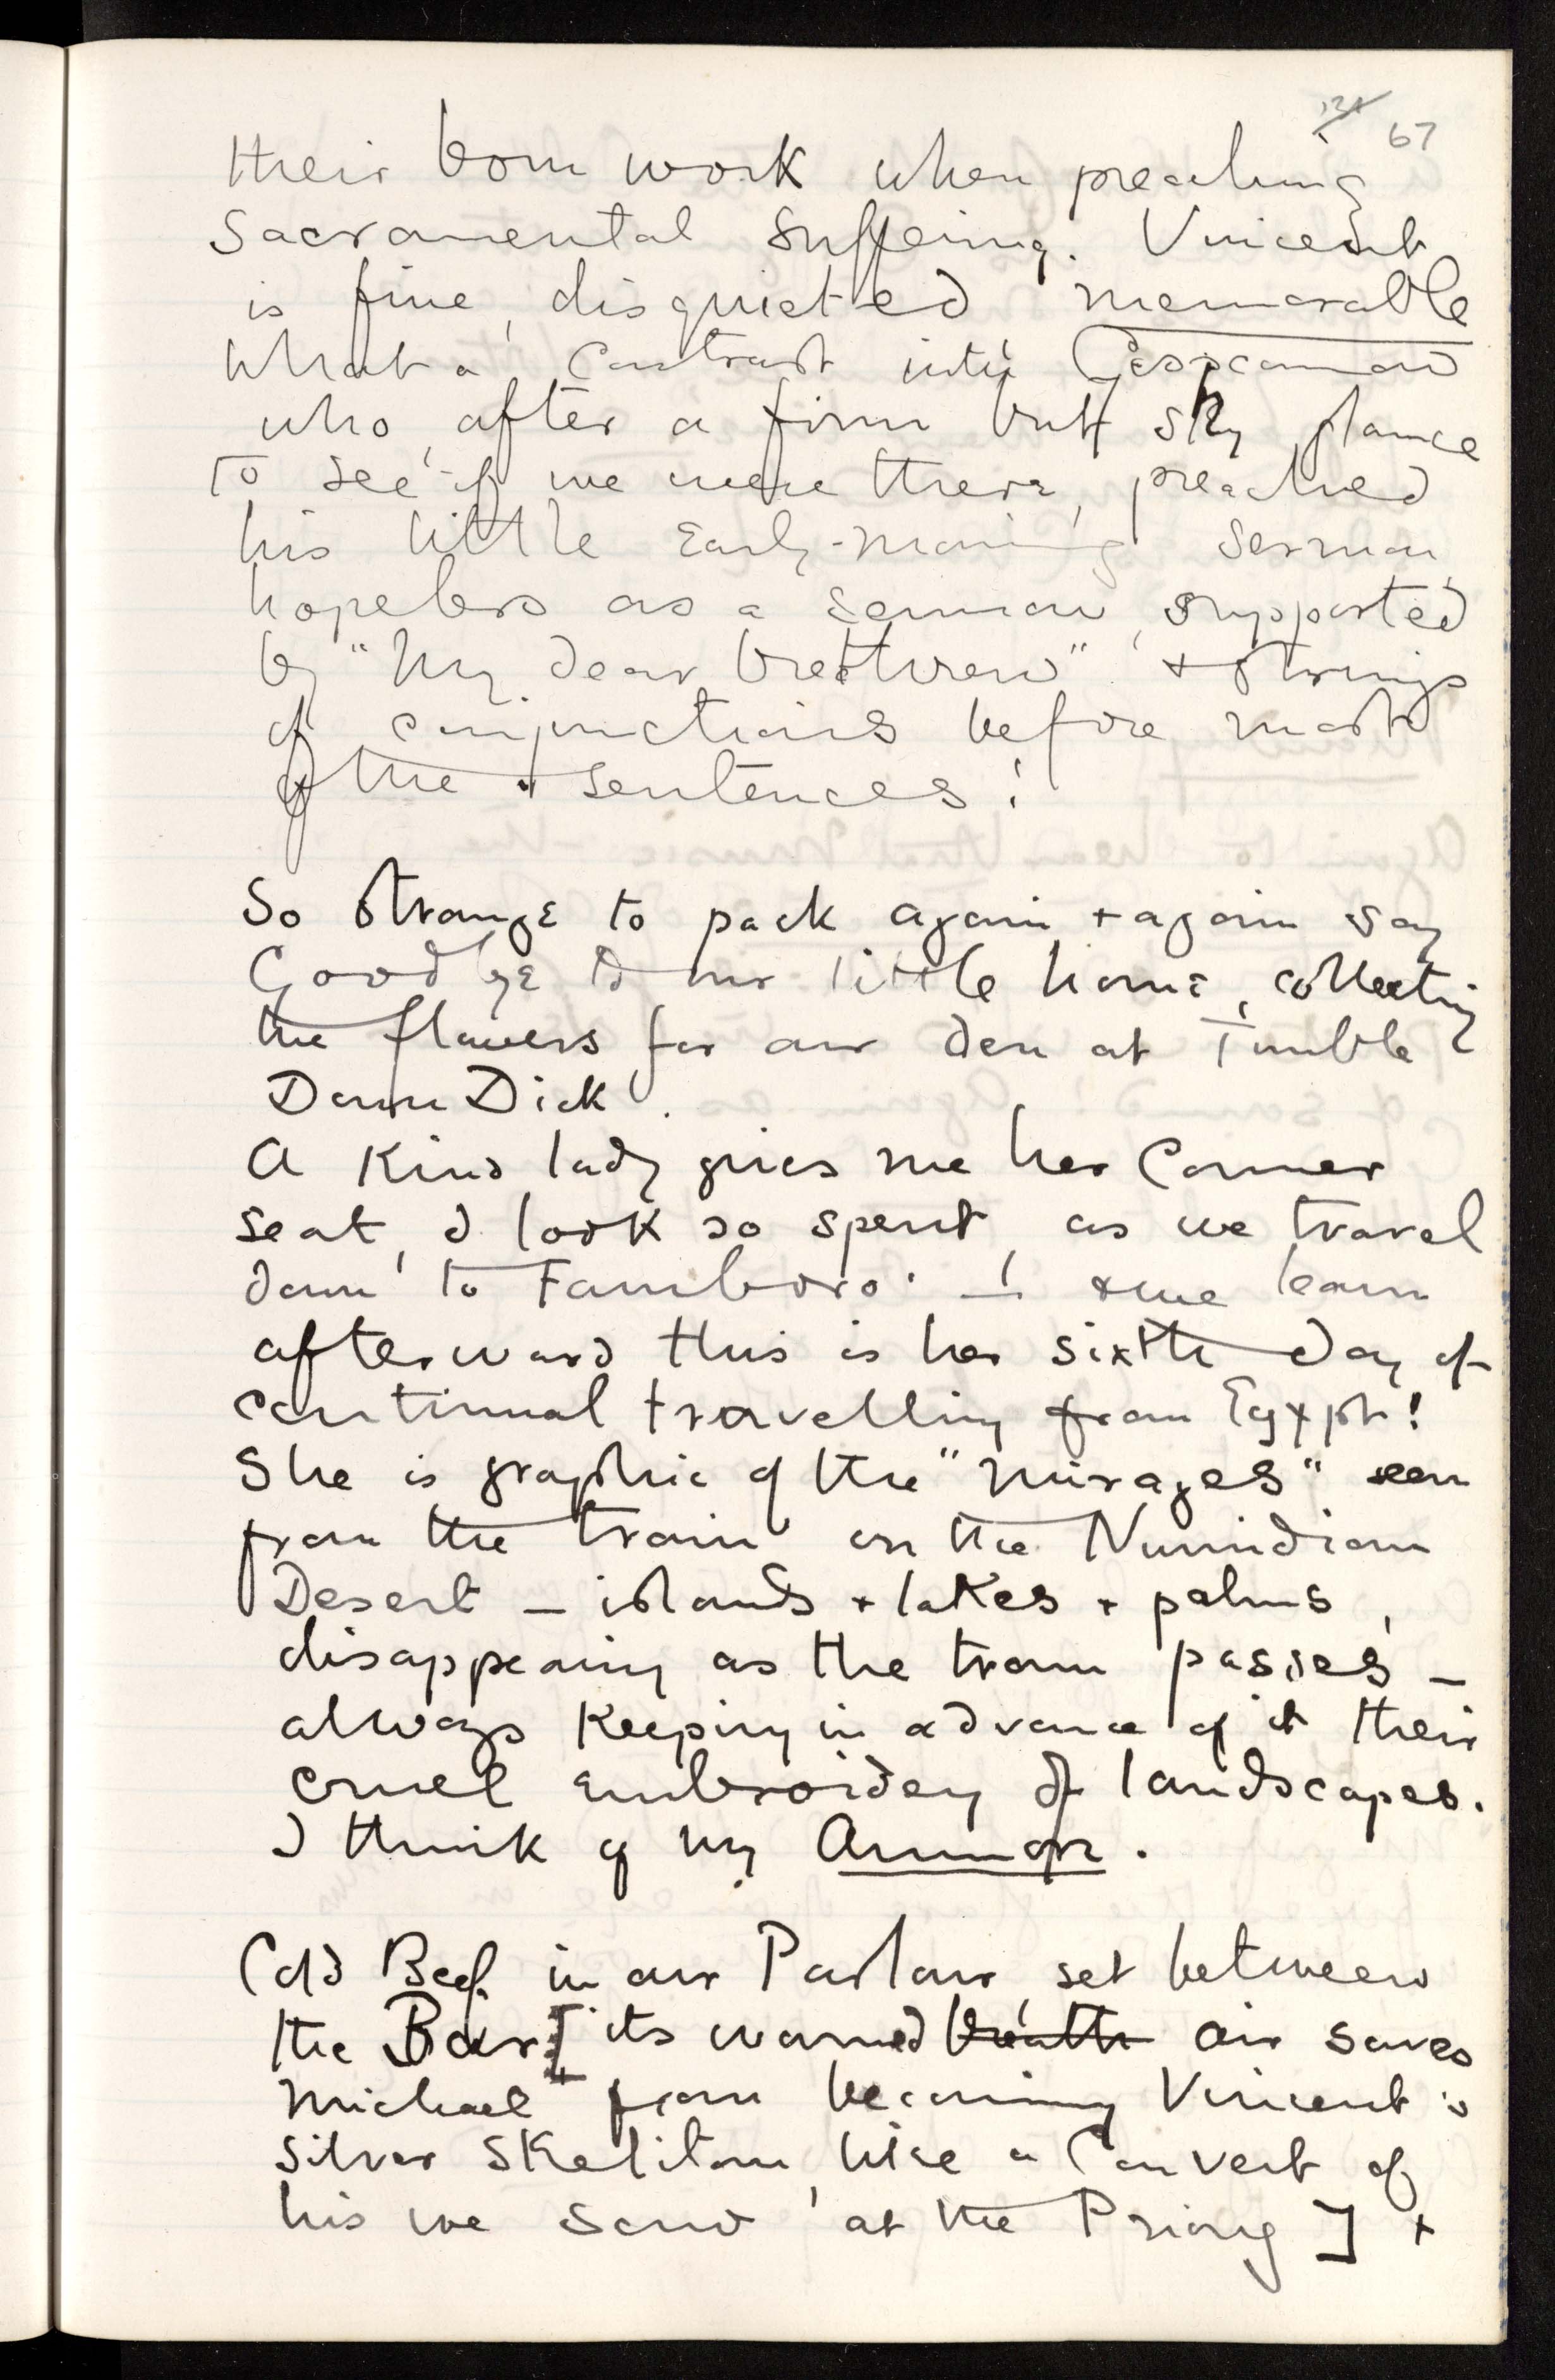 67
their born work when preaching
Sacramental Suffering. Vincent
is fine, disquieted memorable
What a contrast with
who, after a firm but shy glance
to see if we were there, preached
his little Early-morning Sermon,
hopeless as a sermon, supported
by "My dear brethren" + strings
of conjunctions before most
of the sentences!
So strange to pack again + again say
Goodbye to our little home, collecting
the flowers for our den at Tumble
Down Dick.
A Kind lady gives me her Corner
seat, I look so spent, as we travel
down to Farnboro' — ! + we learn
afterward this is her sixth day of
continual travelling from Egypt!
She is graphic of the "Mirages" seen
from the train on the Numidian
Desert — islands + lakes + palms,
disappearing as the train passes —
always Keeping in advance of it their
cruel embroidery of landscapes.
I think of my
Cold Beef in our Parlour, set between
the Bar [its warmed breath air saves
Michael from becoming Vincent's
Silver Skeliton, like a Convert of
his we saw at the Priory] +